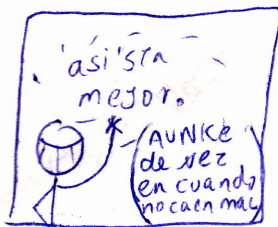 'asi'sta
mejor.
(AUNKE
de vez
en cuando
no caen mal